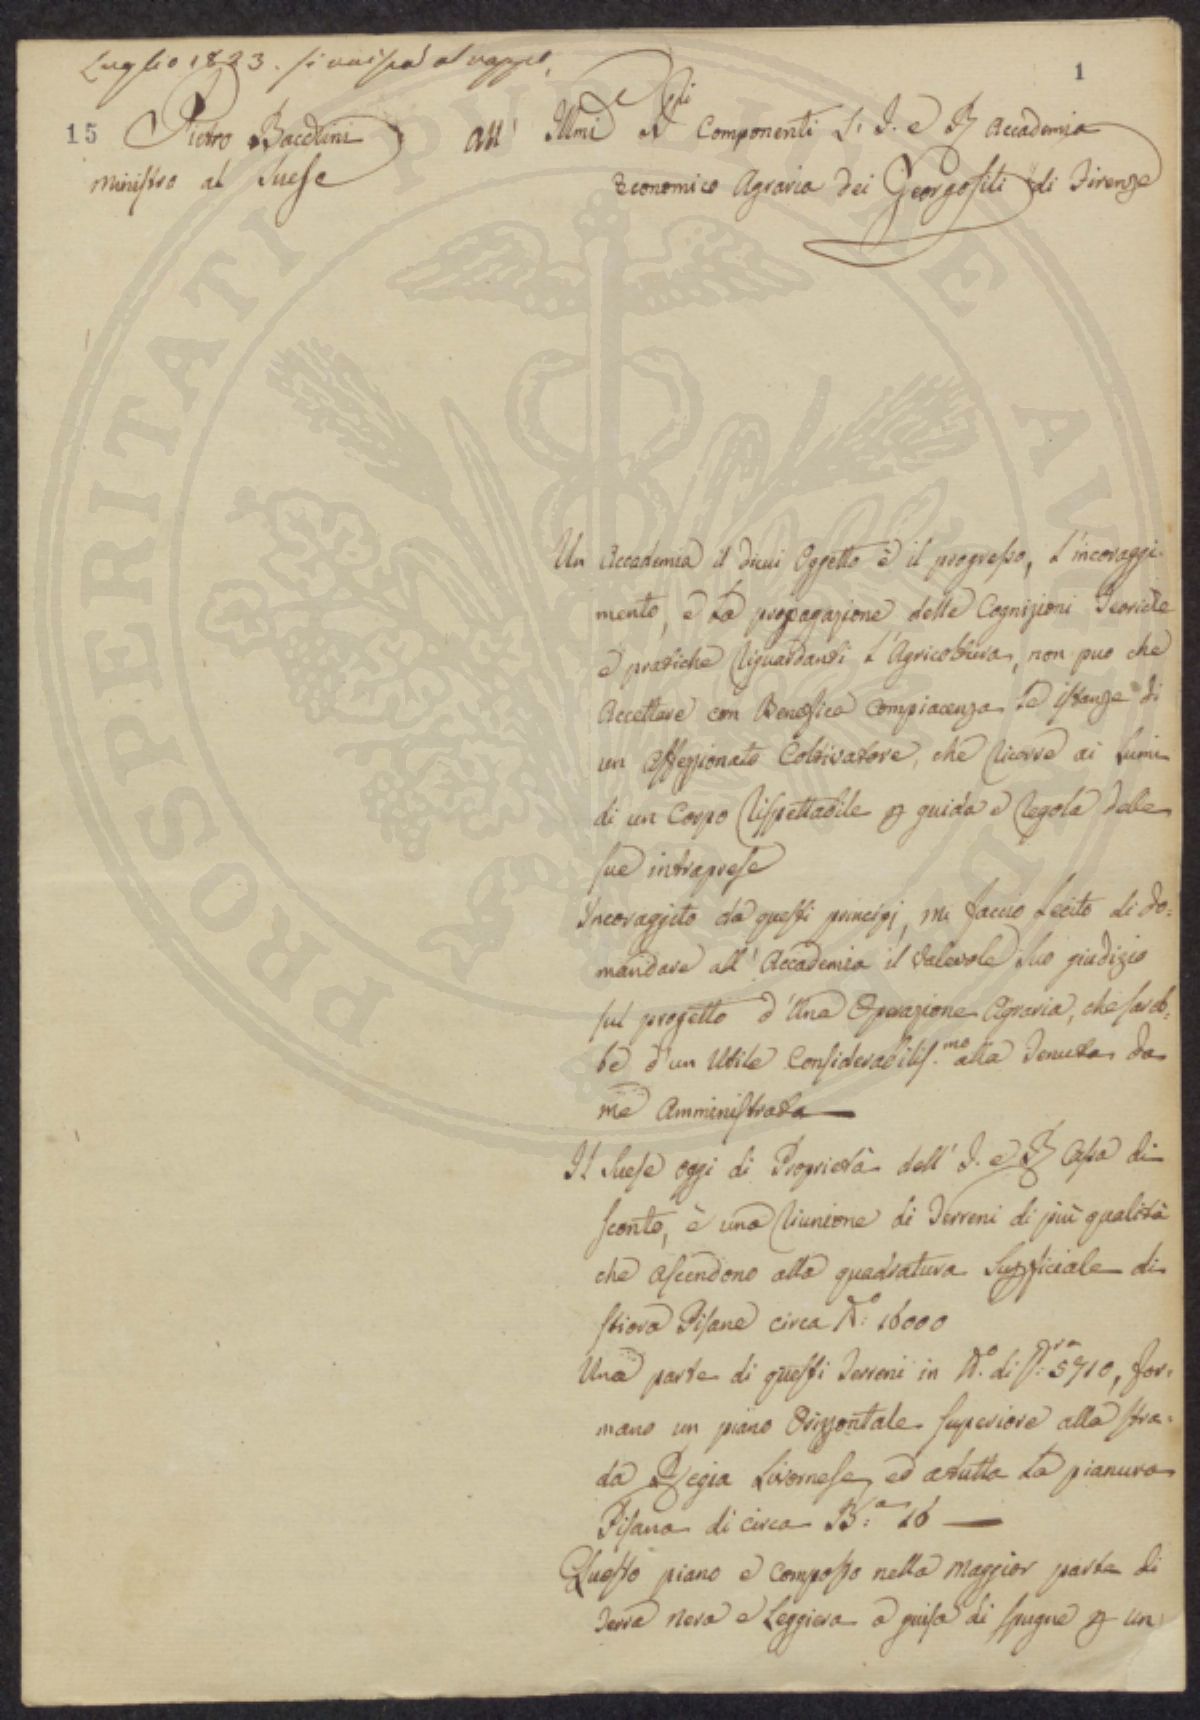 Luglio 1823. si unisca al rappo.
1
15
Pietro Bacchini all' Illmi Sigri Componenti L' I. e R. Accademia
Ministro al Suese Economico Agraria dei Georgofili di Firenze
PROSPERITATI PUBLICAE AUGENDAE
Un Accademia il dicui Oggetto è il progresso, l'incoraggi-
mento, e la propagazione delle Cognizioni Teoriche
e pratiche riguardanti l'Agricoltura, non può che
Accettare con Benefica compiacenza le istanze di
un affezionato Coltivatore, che ricorre ai Lumi
di un Corpo rispettabile p guida e regola delle
sue intraprese
Incoraggito da questi principj, mi faccio lecito di do=
mandare all'Accademia il valevole suo giudizio
sul progetto d'una Operazione Agraria, che sareb=
be d'un Utile Considerabiliss.mo alla Tenuta da
me Amministrata
Il Suese oggi di Proprietà dell' I. e R. Casa di
sconto, è una riunione di Terreni di più qualità
che ascendono alla quadratura Supficiale di
stiora Pisane circa N.o 16000
Una parte di questi Terreni in N.o di S.ra 5710, for=
mano un piano Orizzontale superiore alla stra=
da Regia Livornese, ed a tutta la pianura
Pisana di circa B.a 16
Questo piano è composto nella maggior parte di
Terra nera e Leggiera a guisa di spugne p un